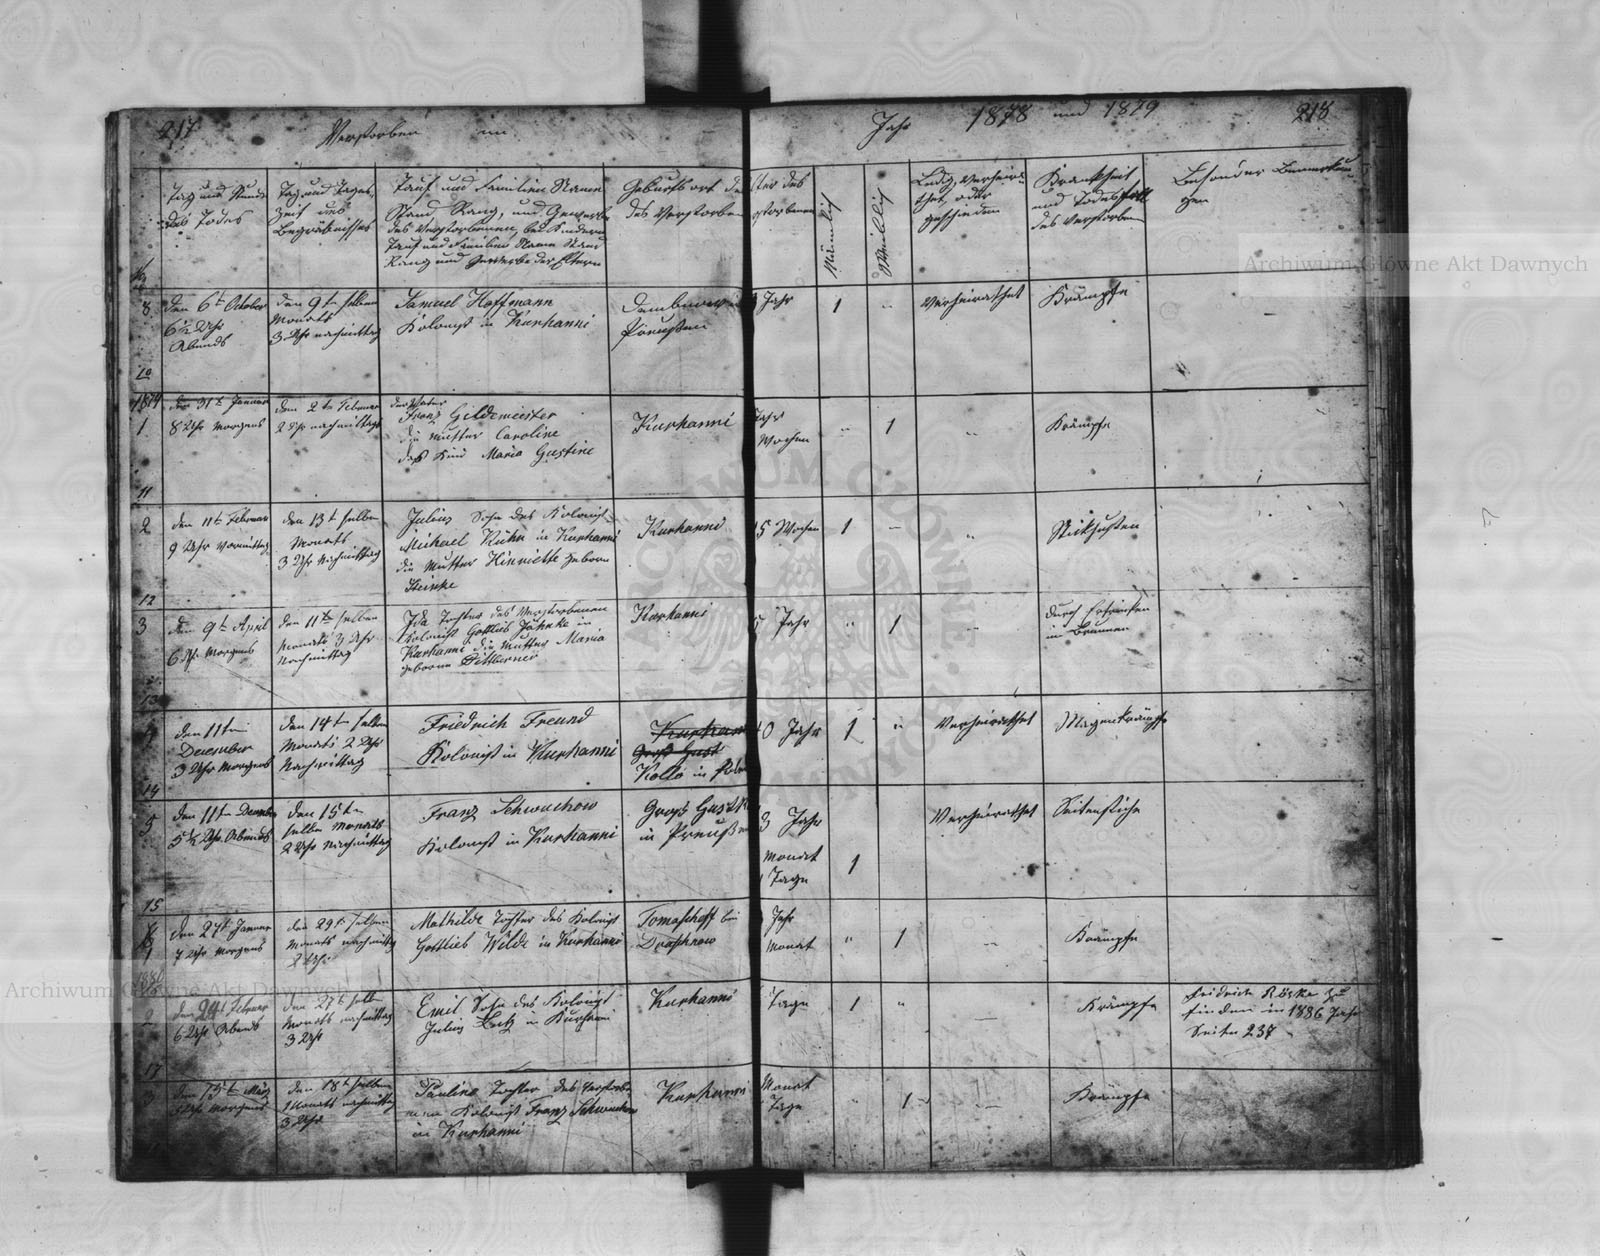 217
Verstorben im
Jahr 1878 und 1879
218
Tag und Stunde
des Todes
Tag und Tages-
Zeit des
Begräbnisses
Tauf und Familien Namen
Stand, Rang, und Gewerbe
des Verstorbenen, bei Kindern
Tauf und Familien Name Stand
Rang und Gewerbe der Eltern
Geburtsort de
des Verstorben
ter des
storbenen
Männlich
Weiblich
Ledig, Verheira-
thet, oder
geschieden
Krankheit
und Todesfall
des Verstorben
Besondere Bemerkun
gen
8
den 6t October
6½ Uhr
Abends
den 9ten selben
Monats
3 Uhr nachmittag
Samuel Hoffmann
Kolonist in Kurhanni
Preußen
Jahr
1
"
Verheirathet
Krämpfe
10
1879
1
den 31t Januar
8 Uhr Morgens
den 2ten Februar
2 Uhr nachmittags
der Vater
Franz Geldemeister
die Mutter Caroline
das Kind Maria Gustine
Kurhanni
Jahr
Wochen
"
1
"
Krämpfe
11
2
den 11t Februar
9 Uhr Vormittag
den 13t selben
Monats
3 Uhr Nachmittag
Julius Sohn des Kolonist
Michael Kühn in Kurhanni
die Mutter Hinriette geborne
Steinke
Kurhanni
5 Wochen
1
"
"
Stickhusten
12
3
den 9t April
6 Uhr Morgens
den 11ten selben
Monats 3 Uhr
Nachmittag
Ida Tochter des Verstorbenen
Kolonist Gottlieb Jahnke in
Kurhanni die Mutter Maria
geborne
Kurhanni
Jahr
"
1
"
durch
im Brunnen
13
4
den 11ten
December
3 Uhr Morgens
den 14ten selben
Monats 2 Uhr
Nachmittag
Friedrich Freund
Kolonist in Kurhanni
Kurhan
Groß Gust
Kollo in Polen
0 Jahr
1
"
Verheirathet
Magenkrämpfe
14
5
den 11ten Decembr
5½ Uhr Abends
den 15ten
selben Monats
2 Uhr Nachmittag
Franz Schwuchow
Kolonist in Kurhanni
Groß Gustk
in Preußen
3 Jahr
Monat
Tage
1
Verheirathet
Seitenstiche
15
1
den 27t Januar
7 Uhr Morgens
den 29t selben
Monats nachmittag
2 Uhr
Mathilde Tochter des Kolonist
Gottlieb Wilde in Kurhanni
Tomascheff bei
Jahr
Monat
"
1
"
Krämpfe
1880
2
den 24t Februar
6 Uhr Abends
den 27t selben
Monats nachmittag
3 Uhr
Emil Sohn des Kolonist
Julius Betz in Kurhanni
Kurhanni
Tage
1
"
Krämpfe
Fridrich Röske zu
finden in 1886 Jahr
Seiten 237
17
3
den 15ten März
Uhr Morgens
den 18t selben
Monats nachmittag
3 Uhr
Pauline Tochter des verstorbe
nen Kolonist Franz Schwuchow
in Kurhanni
Kurhanni
Monat
Tage
"
1
Krämpfe
Archiwum Główne Akt Dawnych
Archiwum Główne Akt Dawnych
ARCHIWUM GŁÓWNE AKT DAWNYCH